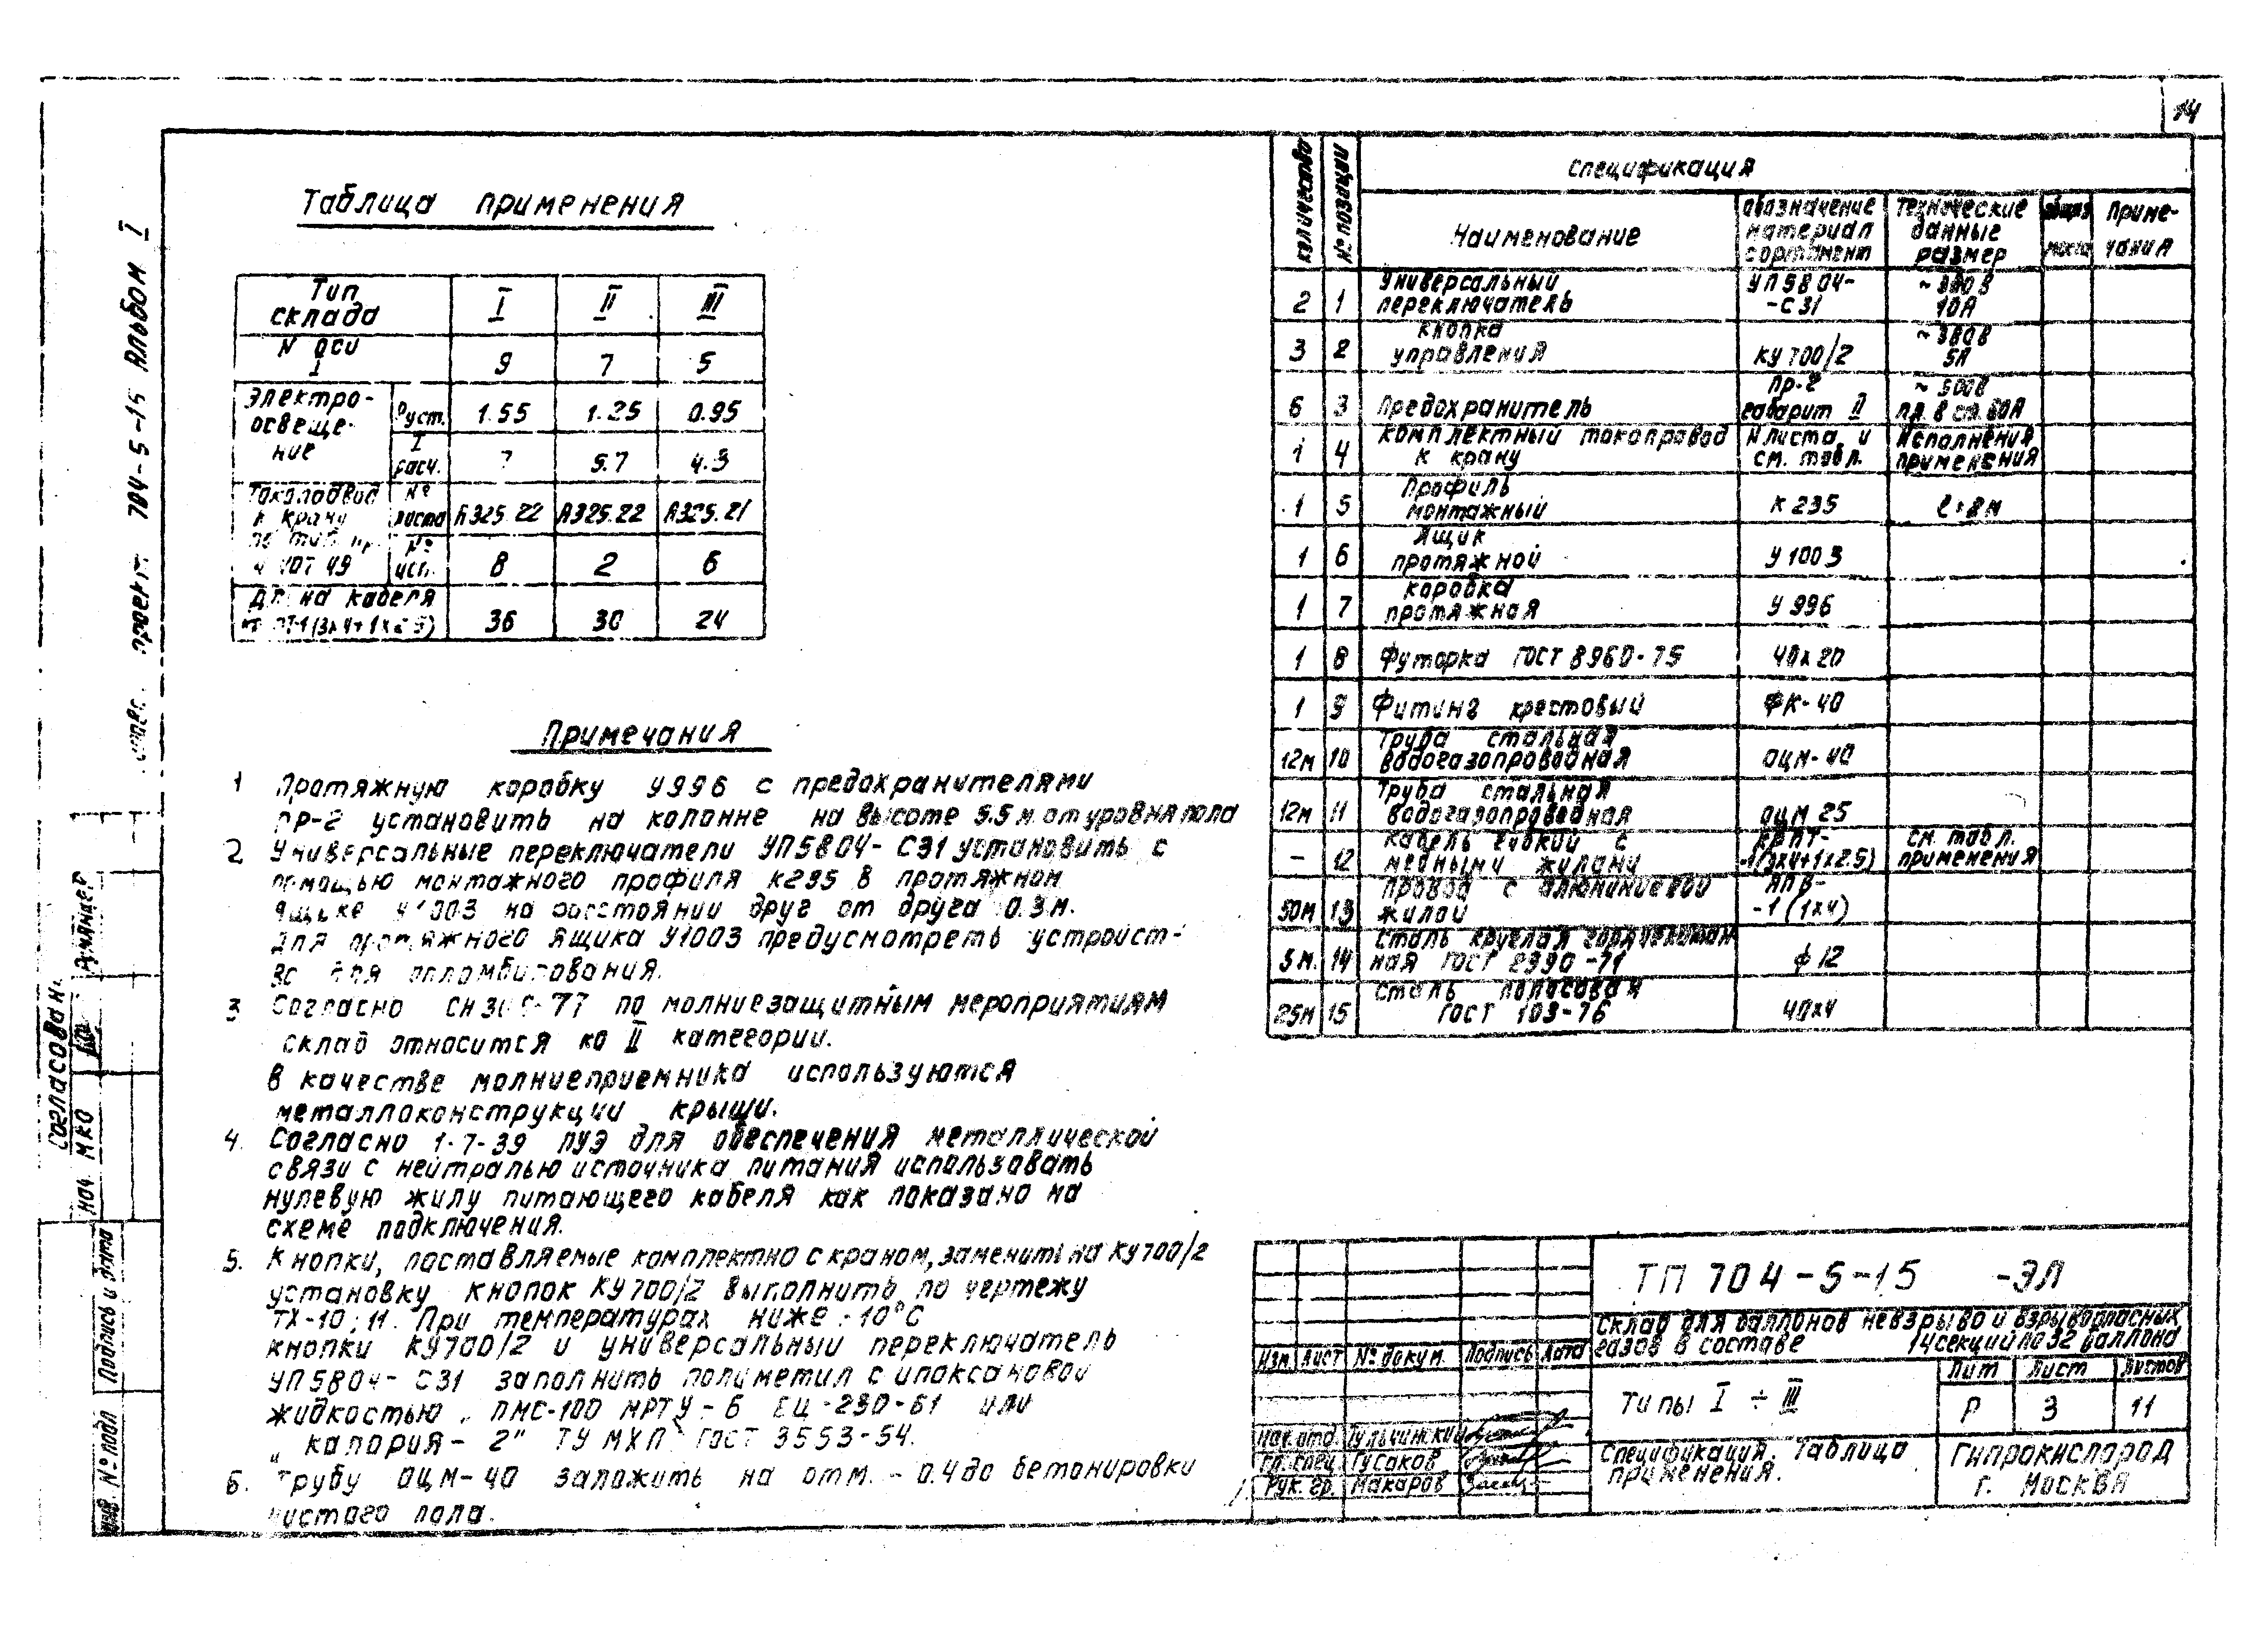 14
Таблица применения
Тип склада I II III
N оси I 9 7 5
Электро-освещение Руст. 1.55 1.25 0.95
I расч. 7 5.7 4.3
Токоподвод к крану № листа А325.22 А325.22 А325.21
№ исп. 8 2 6
Длина кабеля 36 30 24
Примечания
1 Протяжную коробку У996 с предохранителями
ПР-2 установить на колонне на высоте 5.5м от уровня пола
2 Универсальные переключатели УП5804-С31 установить с
помощью монтажного профиля К235 в протяжном
ящике У1003 на расстоянии друг от друга 0.3м.
Для протяжного ящика У1003 предусмотреть устройст-
во для опломбирования.
3 Согласно СН 305-77 по молниезащитным мероприятиям
склад относится ко II категории.
В качестве молниеприемника используются
металлоконструкции крыши.
4. Согласно 1-7-39 ПУЭ для обеспечения металлической
связи с нейтралью источника питания использовать
нулевую жилу питающего кабеля как показано на
схеме подключения.
5. Кнопки, поставляемые комплектно с краном, заменить на КУ700/2
установку кнопок КУ700/2 выполнить по чертежу
ТХ-10;11. При температурах ниже -10°С
кнопки КУ700/2 и универсальный переключатель
УП5804-С31 заполнить полиметилсилоксановой
жидкостью ПМС-100 МРТУ-6 ЕЦ-230-61 или
„калория-2" ТУ МХП ГОСТ 3553-54.
6. Трубу ОЦМ-40 заложить на отм. -0.4 до бетонировки
чистого пола.
количество № позиции Спецификация
Наименование Обозначение материал сортамент Технические данные размер общая масса Приме-чания
2 1 Универсальный переключатель УП5804-С31 ~380В 10А
3 2 Кнопка управления КУ700/2 ~380В 5А
6 3 Предохранитель ПР-2 габарит II ~500В
1 4 Комплектный токопровод к крану N листа и исполнения см. табл. применения
1 5 Профиль монтажный К235 ℓ=2м
1 6 Ящик протяжной У1003
1 7 Коробка протяжная У996
1 8 Футорка ГОСТ 8960-75 40х20
1 9 Фитинг крестовый ФК-40
12м 10 Труба стальная водогазопроводная ОЦМ-40
12м 11 Труба стальная водогазопроводная ОЦМ 25
- 12 Кабель гибкий с медными жилами КРПТ-1(3х4+1х2.5) см. табл. применения
50м 13 Провод с алюминиевой жилой АПВ-1(1х4)
5м. 14 Сталь круглая горячекатанная ГОСТ 2590-71 ф12
25м 15 Сталь полосовая ГОСТ 103-76 40х4
ТП 704-5-15 -ЭЛ
Склад для баллонов невзрыво и взрывоопасных
газов в составе 14 секций по 32 баллона
Изм. Лист № докум. Подпись Дата
Типы I ÷ III
Лит Лист Листов
Р 3 11
Нач. отд. Гульчинский
Гл. спец. Гусаков
Рук. гр. Макаров
Спецификация. Таблица применения.
ГИПРОКИСЛОРОД
г. Москва
проект 704-5-15 Альбом I
Согласован:
Нач МКО
Подпись и дата
Инв № подл